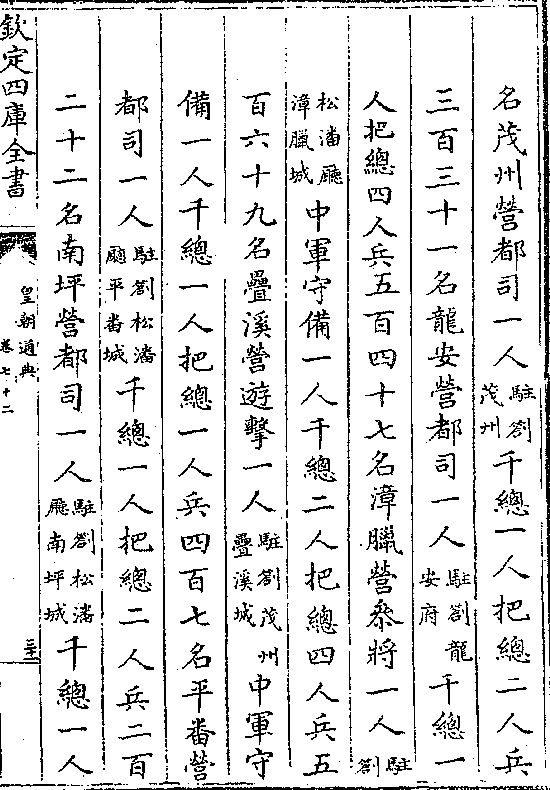 名茂州營都司一人駐劄茂州千總一人把總二人兵
三百三十一名龍安營都司一人駐劄龍安府千總一
人把總四人兵五百四十七名漳臘營叅將一人駐劄
松潘廳漳臘城中軍守備一人千總二人把總四人兵五
百六十九名疊溪營遊擊一人駐劄茂州疊溪城中軍守
備一人千總一人把總一人兵四百七名平畨營
都司一人駐劄松潘廳平畨城千總一人把總二人兵二百
二十二名南坪營都司一人駐劄松潘廳南坪城千總一人
欽定四庫全書
皇朝通典
卷七十二